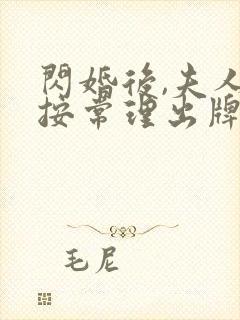 閃婚後,夫人
按常理出牌
毛尼